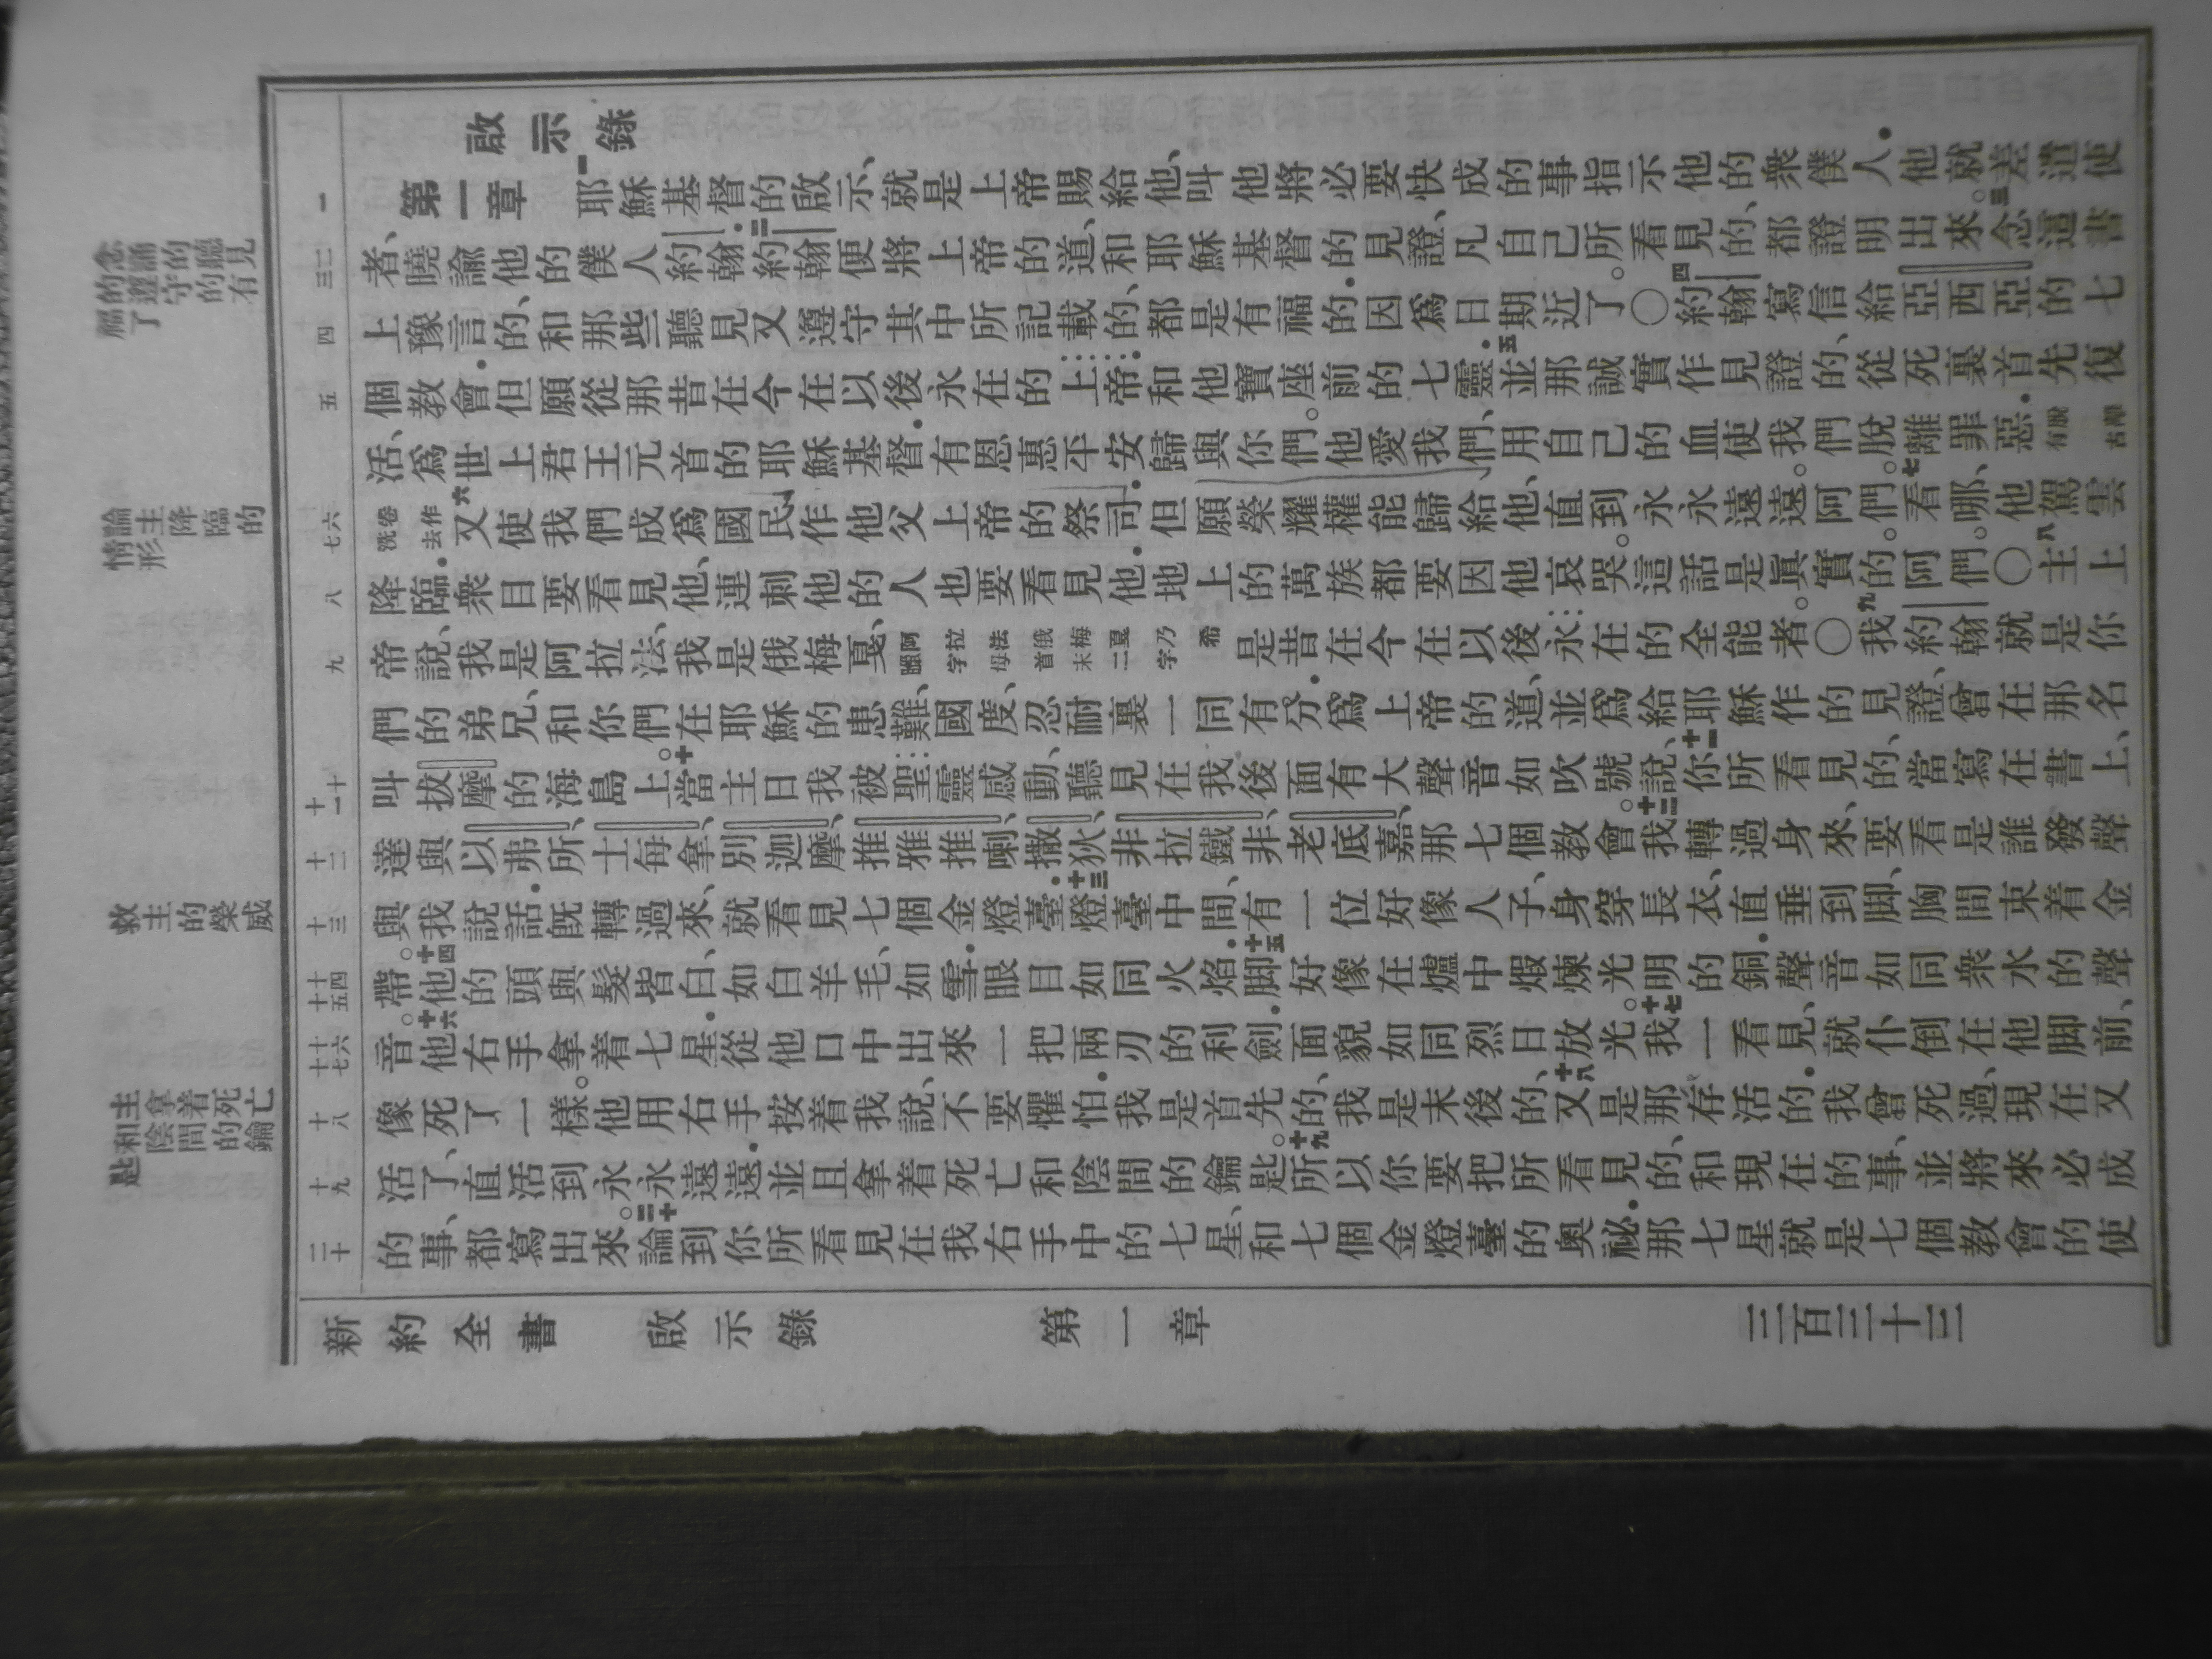 啟示錄
第一章　一耶穌基督的啟示、就是上帝賜給他、叫他將必要快成的事指示他的衆僕人．他就差遣使
者、曉諭他的僕人約翰．二約翰便將上帝的道、和耶穌基督的見證、凡自己所看見的、都證明出來。三念這書
上豫言的、和那些聽見又遵守其中所記載的、都是有福的．因爲日期近了。〇四約翰寫信給亞西亞的七
個教會．但願從那昔在今在以後永在的上帝．和他寶座前的七靈．五並那誠實作見證的、從死裏首先復
活、爲世上君王元首的耶穌基督．有恩惠平安歸與你們。他愛我們、用自己的血使我們脫離罪惡．有古脫離
洗去卷作六又使我們成爲國民、作他父上帝的祭司．但願榮耀權能歸給他、直到永永遠遠。阿們。七看哪、他駕雲
降臨．衆目要看見他、連刺他的人也要看見他．地上的萬族都要因他哀哭。這話是眞實的。阿們。〇八主上
帝說、我是阿拉法、我是俄梅戞、阿拉法俄梅戞乃希臘字母首末二字是昔在今在以後永在的全能者。〇九我約翰就是你
們的弟兄、和你們在耶穌的患難、國度、忍耐裏一同有分．爲上帝的道、並爲給耶穌作的見證、曾在那名
叫拔摩的海島上。十當主日我被聖靈感動、聽見在我後面有大聲音如吹號說、十一你所看見的、當寫在書上、
達與以弗所、士每拿、別迦摩、推雅推喇、撒狄、非拉鐵非、老底嘉、那七個教會。十二我轉過身來、要看是誰發聲
與我說話．旣轉過來、就看見七個金燈臺．十三燈臺中間、有一位好像人子、身穿長衣、直垂到脚、胸間束着金
帶。十四他的頭與髮皆白、如白羊毛、如雪．眼目如同火焰．十五脚好像在爐中煆煉光明的銅．聲音如同衆水的聲
音。十六他右手拿着七星．從他口中出來一把兩刃的利劍．面貌如同烈日放光。十七我一看見、就仆倒在他脚前、
像死了一樣。他用右手按着我說、不要懼怕．我是首先的、我是末後的、十八又是那存活的．我曾死過、現在又
活了、直活到永永遠遠．並且拿着死亡和陰間的鑰匙。十九所以你要把所看見的、和現在的事、並將來必成
的事、都寫出來。二十論到你所看見在我右手中的七星、和七個金燈臺的奧祕．那七星就是七個教會的使
一
二三
四
五
六七
八
九
十十一
十二
十三
十四十五
十六十七
十八
十九
二十
念誦的聽見的遵守的有福了
論主降臨的情形
救主的榮威
主拿着死亡和陰間的鑰匙
新約全書　啟示錄　第一章　三百三十三